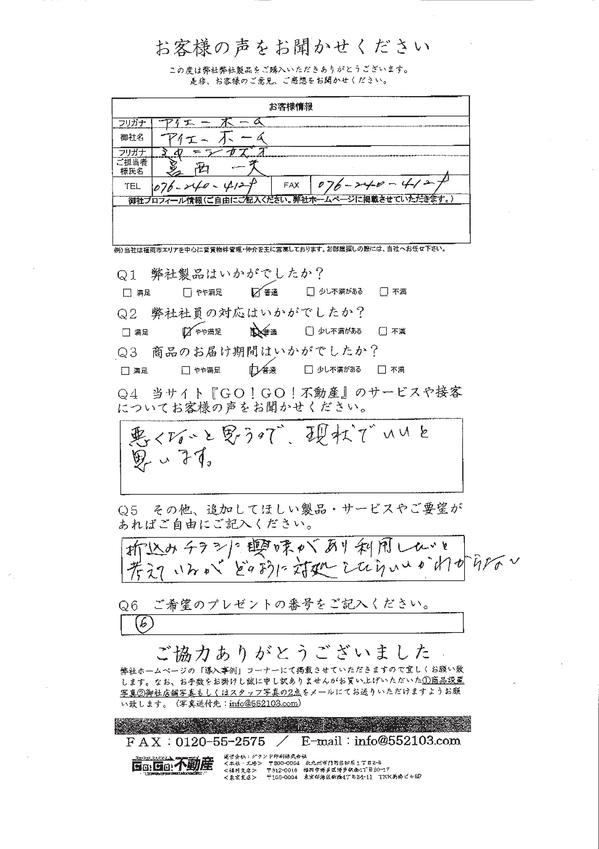 お客様の声をお聞かせください
この度は弊社弊社製品をご購入いただきありがとうございます。
是非、お客様のご意見、ご感想をお聞かせください。
お客様情報
フリガナ アイエーホーム
御社名 アイエーホーム
フリガナ
ご担当者様氏名 西 一夫
TEL 076-240-4127 FAX 076-240-4127
御社プロフィール情報(ご自由にご記入ください。弊社ホームページに掲載させていただきます。)
例)当社は福岡市エリアを中心に賃貸物件管理・仲介を主に営業しております。お部屋探しの際には、当社へお任せ下さい。
Q1 弊社製品はいかがでしたか?
□ 満足 □ やや満足 □ 普通 □ 少し不満がある □ 不満
Q2 弊社社員の対応はいかがでしたか?
□ 満足 □ やや満足 □ 普通 □ 少し不満がある □ 不満
Q3 商品のお届け期間はいかがでしたか?
□ 満足 □ やや満足 □ 普通 □ 少し不満がある □ 不満
Q4 当サイト『GO!GO!不動産』のサービスや接客
についてお客様の声をお聞かせください。
悪くないと思うので、現状でいいと
思います。
Q5 その他、追加してほしい製品・サービスやご要望が
あればご自由にご記入ください。
折込みチラシに興味があり利用したいと
考えているが どのように対処したらいいかわからない
Q6 ご希望のプレゼントの番号をご記入ください。
⑥
ご協力ありがとうございました
弊社ホームページの「導入事例」コーナーにて掲載させていただきますので宜しくお願い致
します。なお、お手数をお掛けし誠に申し訳ありませんがお買い上げいただいた①商品設置
写真②御社店舗写真もしくはスタッフ写真の2点をメールにてお送りいただけますようお願
い致します。(写真送付先:info@552103.com)
FAX:0120-55-2575 / E-mail:info@552103.com
GO!GO!不動産
運営会社:グランド印刷株式会社
<本社・工場> 〒800-0004 北九州市門司区
<福岡支店> 〒812-0016 福岡市博多区博多駅南4丁目
<東京支店>